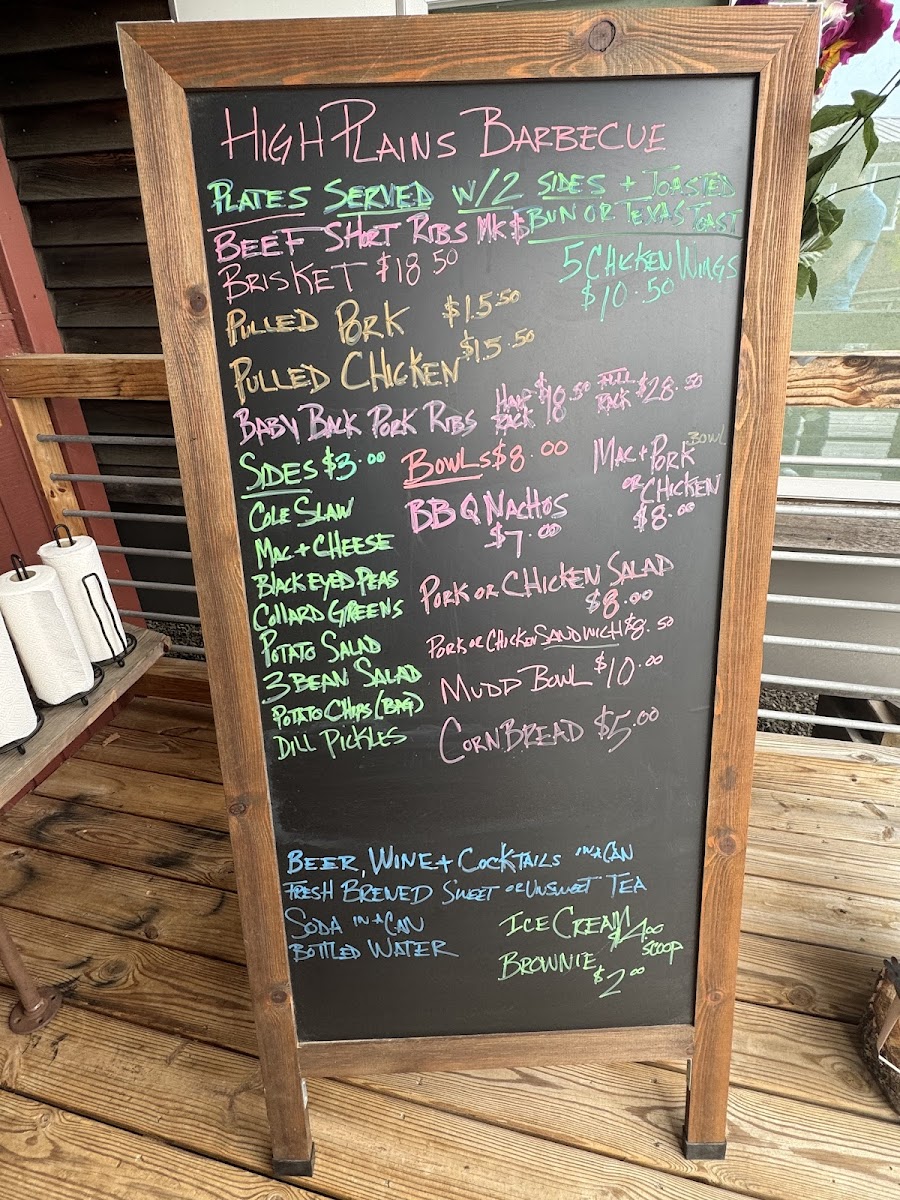 HIGH PLAINS BARBECUE
PLATES SERVED W/2 SIDES + TOASTED
BUN OR TEXAS TOAST
BEEF SHORT RIBS MK $
BRISKET $18.50
5 CHICKEN WINGS
$10.50
PULLED PORK $15.50
PULLED CHICKEN $15.50
BABY BACK PORK RIBS HALF RACK $18.50 FULL RACK $28.50
SIDES $3.00
COLE SLAW
MAC + CHEESE
BLACK EYED PEAS
COLLARD GREENS
POTATO SALAD
3 BEAN SALAD
POTATO CHIPS (BAG)
DILL PICKLES
BOWLS $8.00
MAC + PORK BOWL
OR CHICKEN
$8.00
BBQ NACHOS
$7.00
PORK OR CHICKEN SALAD
$8.00
PORK OR CHICKEN SANDWICH $8.50
MUDD BOWL $10.00
CORNBREAD $5.00
BEER, WINE + COCKTAILS IN A CAN
FRESH BREWED SWEET OR UNSWEET TEA
SODA IN A CAN
BOTTLED WATER
ICE CREAM $4.00
SCOOP
BROWNIE $2.00